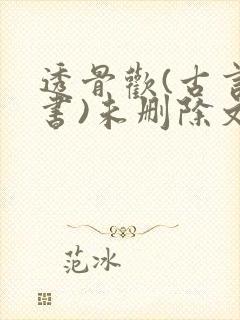 透骨歡(古言
書)未删除文
范冰